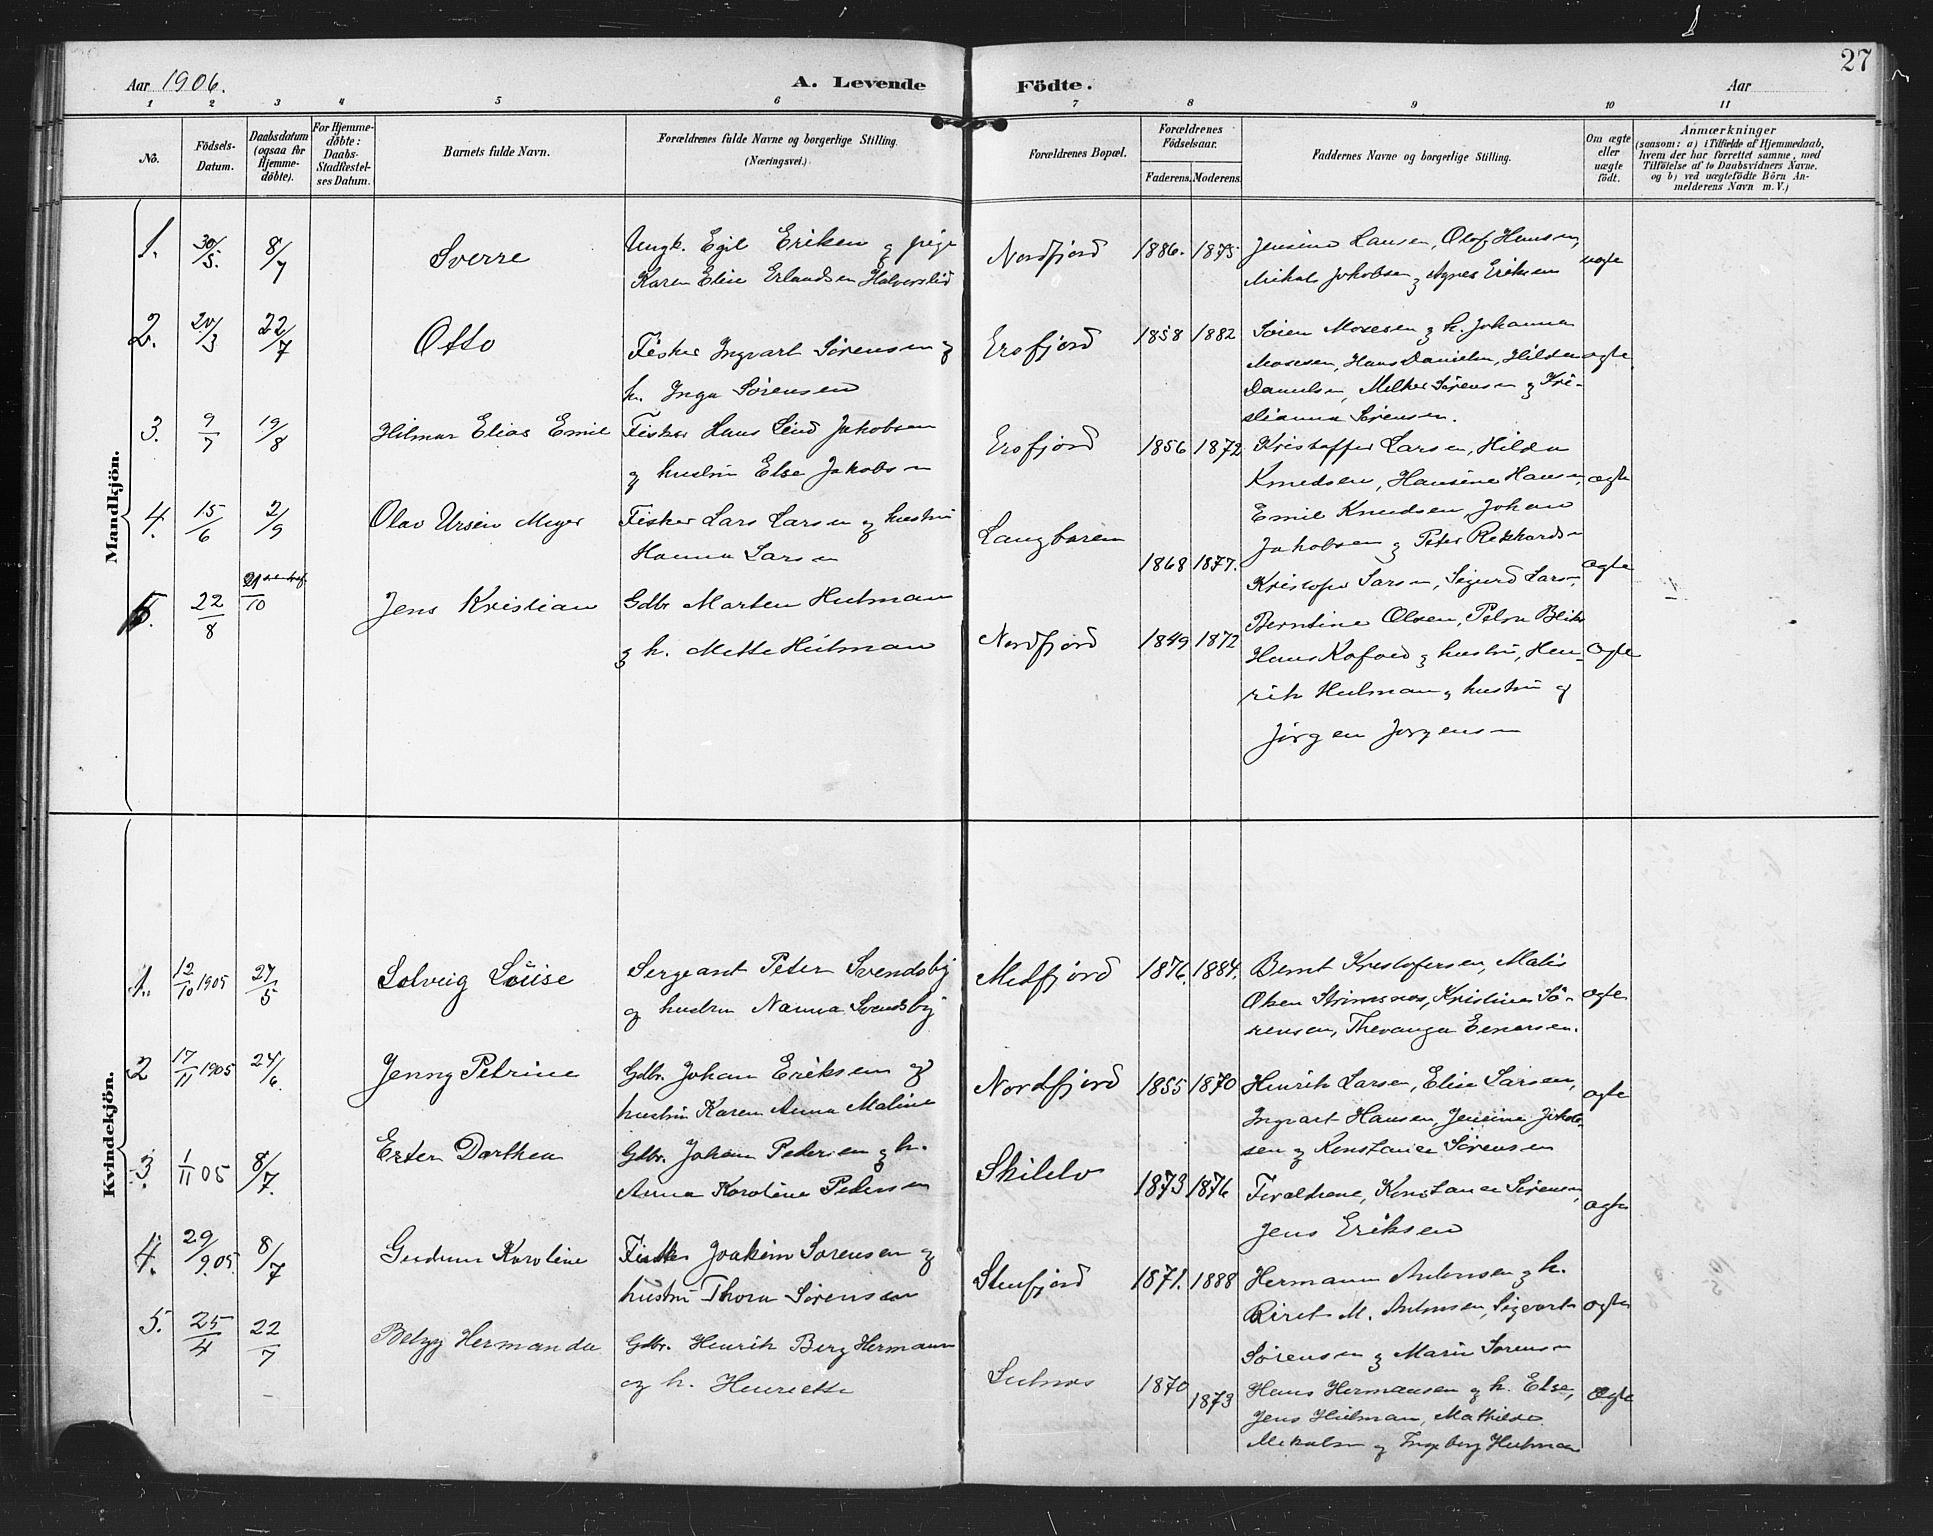 27
Aar 1906.
A. Levende Födte.
Aar
1 2 3 4 5 6 7 8 9 10 11
No.
Födsels-Datum.
Daabsdatum (ogsaa for Hjemme-döbte).
For Hjemme-döbte: Daabs-Stadfæstel-ses Datum.
Barnets fulde Navn.
Forældrenes fulde Navne og borgerlige Stilling.
(Næringsvei.)
Forældrenes Bopæl.
Forældrenes Födselsaar.
Faderens. Moderens.
Faddernes Navne og borgerlige Stilling.
Om ægte eller uægte födt.
Anmærkninger
(saasom: a) i Tilfælde af Hjemmedaab,
hvem der har forrettet samme, med
Tilföielse af to Daabsvidners Navne.
og b) ved uægtefödte Börn An-
melderens Navn m. V.)
Mandkjön.
1. 30/5. 8/7 Sverre
Ungk. Egil Eriksen og pige
Karen Elise Erlandsen Halvorslid
Nordfjord 1886. 1875.
Jensine Larsen, Olof Hansen,
Mikal Jakobsen og Agnes Eriksen
uegte
2. 20/3 22/7 Otto
Fisker Ingvart Sørensen og
h. Inga Sørensen
Ersfjord 1858 1882
Søren Mosesen og h. Johanna
Mosesen, Hans Danielsen, Hilda
Danielsen, Melker Sørensen og Kri-
stianna Sørensen.
ægte
3. 9/7 19/8 Hilmar Elias Emil
Fisker Hans Lind Jakobsen
og hustru Else Jakobsen
Ersfjord 1856 1872
Kristoffer Larsen, Hilda
Knudsen, Hansine Hansen,
Emil Knudsen, Johan
Jakobsen og Peter Rikhardsen
ægte
4. 15/6 2/9 Olav Ursin Meyer
Fisker Lars Larsen og hustru
Hanna Larsen
1868 1877.
Kristofer Larsen, Sigurd Larsen,
Berntine Olsen,
ægte
5. 22/8 21/10 Jens Kristian
Gdbr Morten Hulman
og h. Mette Hulman
Nordfjord 1849 1872
Hans Kofoed og hustru, Hen-
rik Hulman og hustru og
Jørgen Jørgensen
ægte
Kvindekjön.
1. 12/10 1905 27/5 Solveig Lovise
Sergeant Peter Svendsby
og hustru Nanna Svendsby
Medfjord 1876. 1884.
Bernt Kristofersen, Matis
Olsen Strømsnes, Kristine Sø-
rensen, Thevanga Einarsen.
ægte
2 17/11 1905 24/6. Jenny Petrine
Gdbr. Johan Eriksen og
hustru Karen Anna Maline
Nordfjord 1855 1870
Hinrik Larsen, Elise Larsen,
Ingvart Hansen, Jensine Jakob-
sen og Konstance Sørensen
ægte
3. 1/11 05 8/7. Ester Dorthea
Gdbr. Johan Pedersen og h.
Anna Karoline Pedersen
1873 1876
Foreldrene, Konstance Sørensen,
Jens Eriksen
ægte
4. 29/9.05. 8/7 Gudrun Karoline
Fisker Joakim Sørensen og
hustru Thora Sørensen
Stenfjord 1871. 1888
Hermann Antonsen og h.
Biret M. Antonsen, Sigvart
Sørensen og Marie Sørensen
ægte
5. 25/4 22/7 Betzy Hermanda
Gdbr. Henrik Berg Hermann
og h. Henriette
1870 1873
Hans Hermansen og h. Else,
Jens Hulman, Mathilde
Mikalsen og Ingeborg Hulman
Ægte